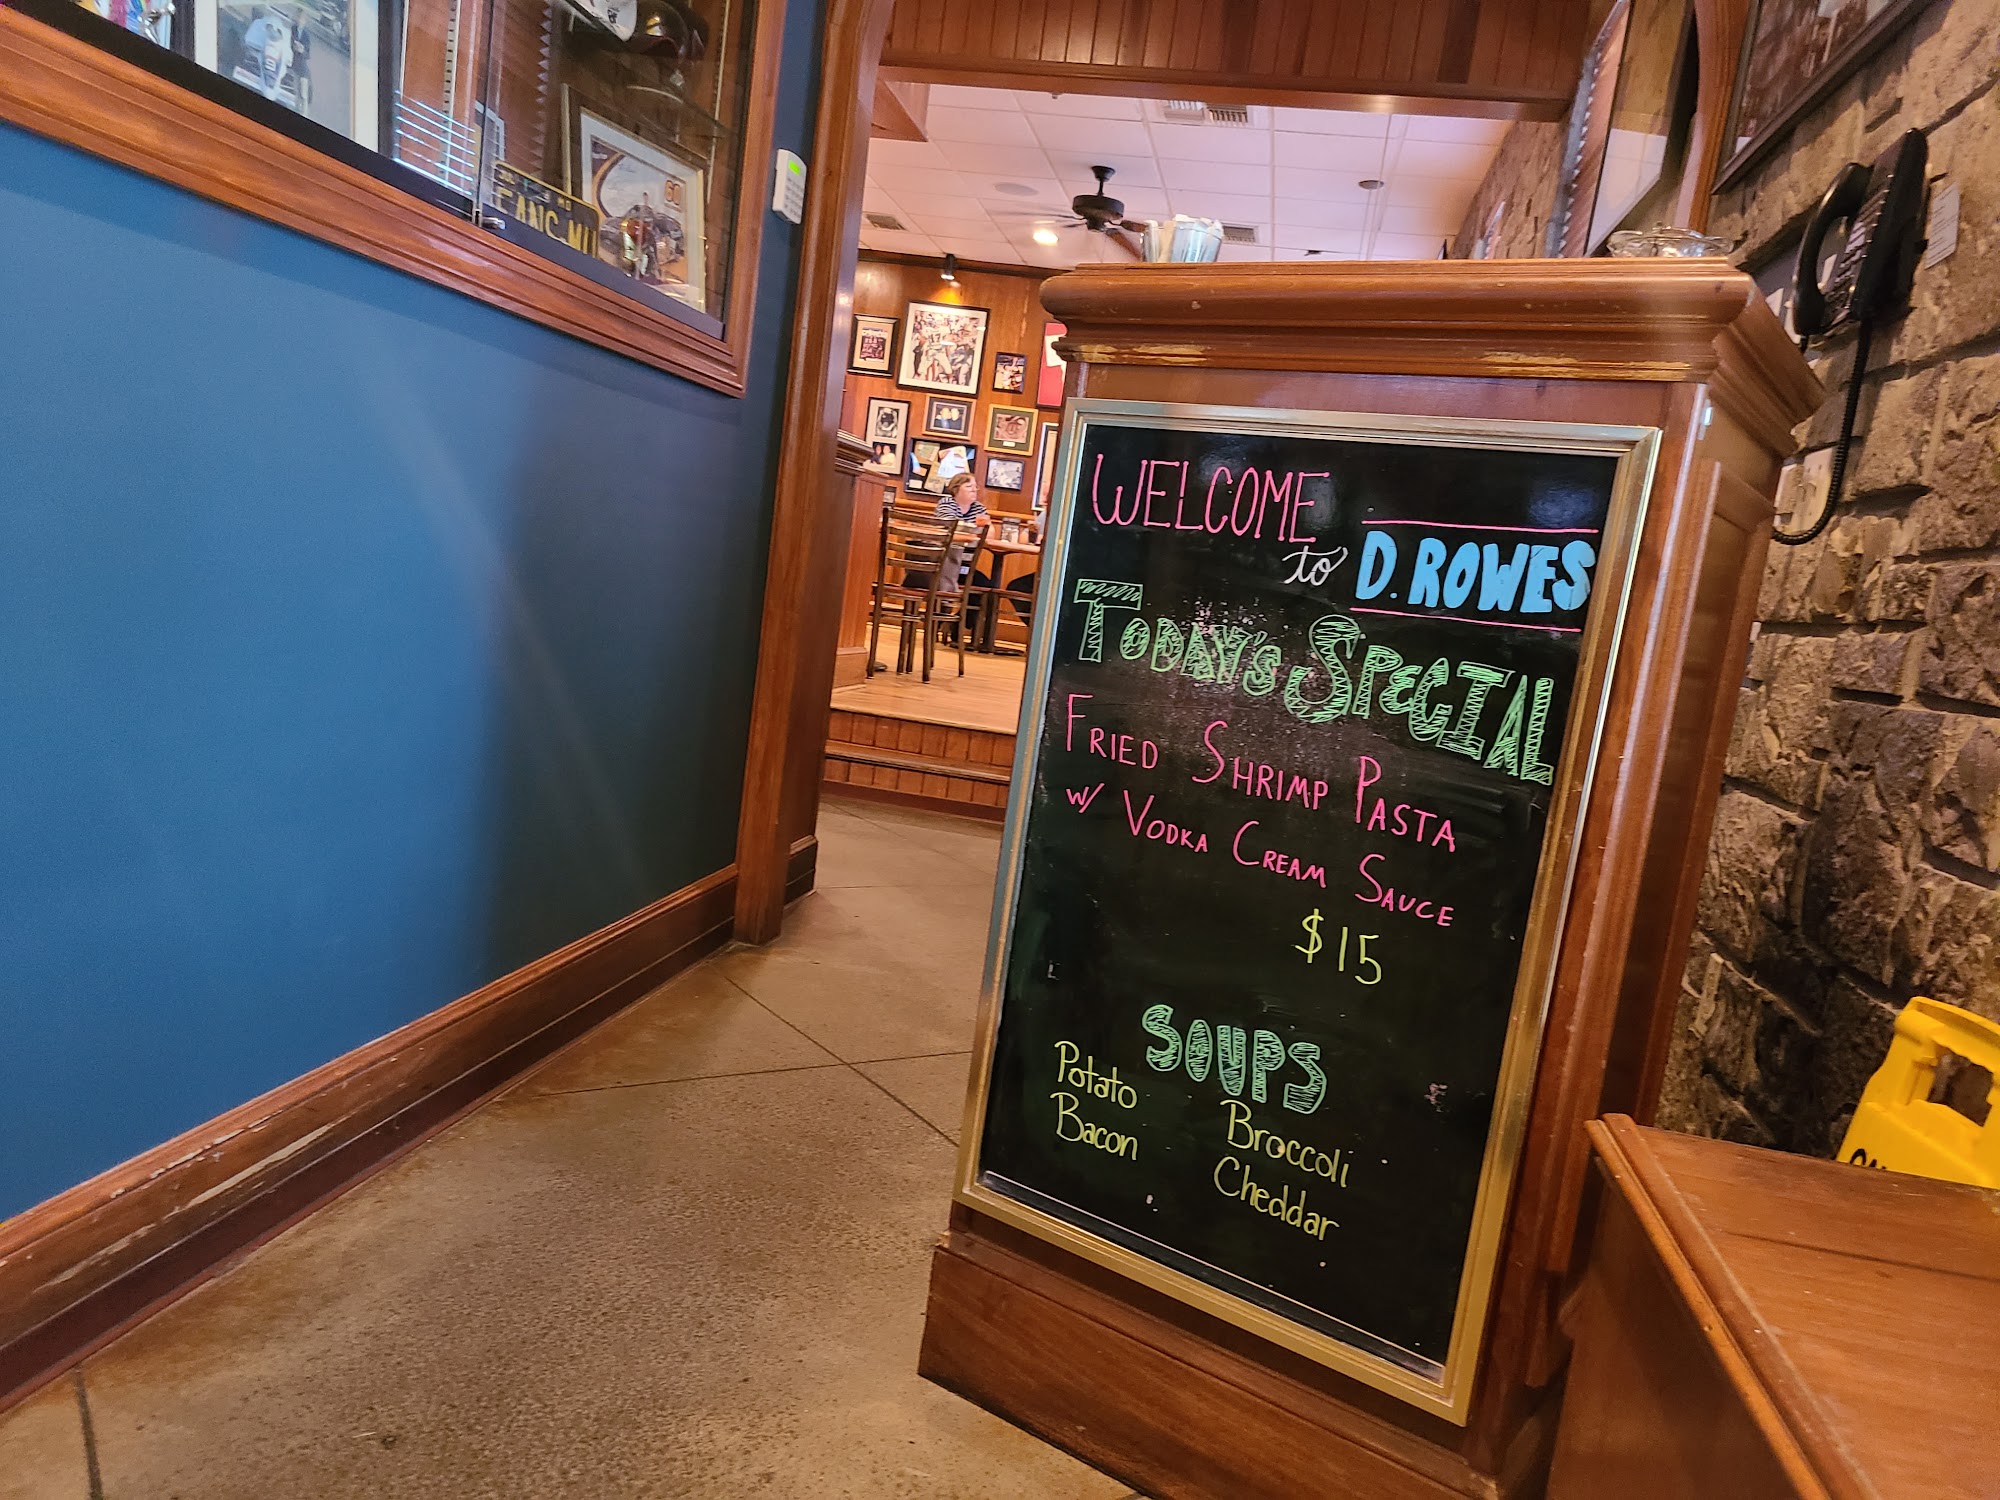 WELCOME
to D. ROWES
TODAY'S SPECIAL
FRIED SHRIMP PASTA
W/ VODKA CREAM SAUCE
$15
SOUPS
Potato
Bacon
Broccoli
Cheddar
60